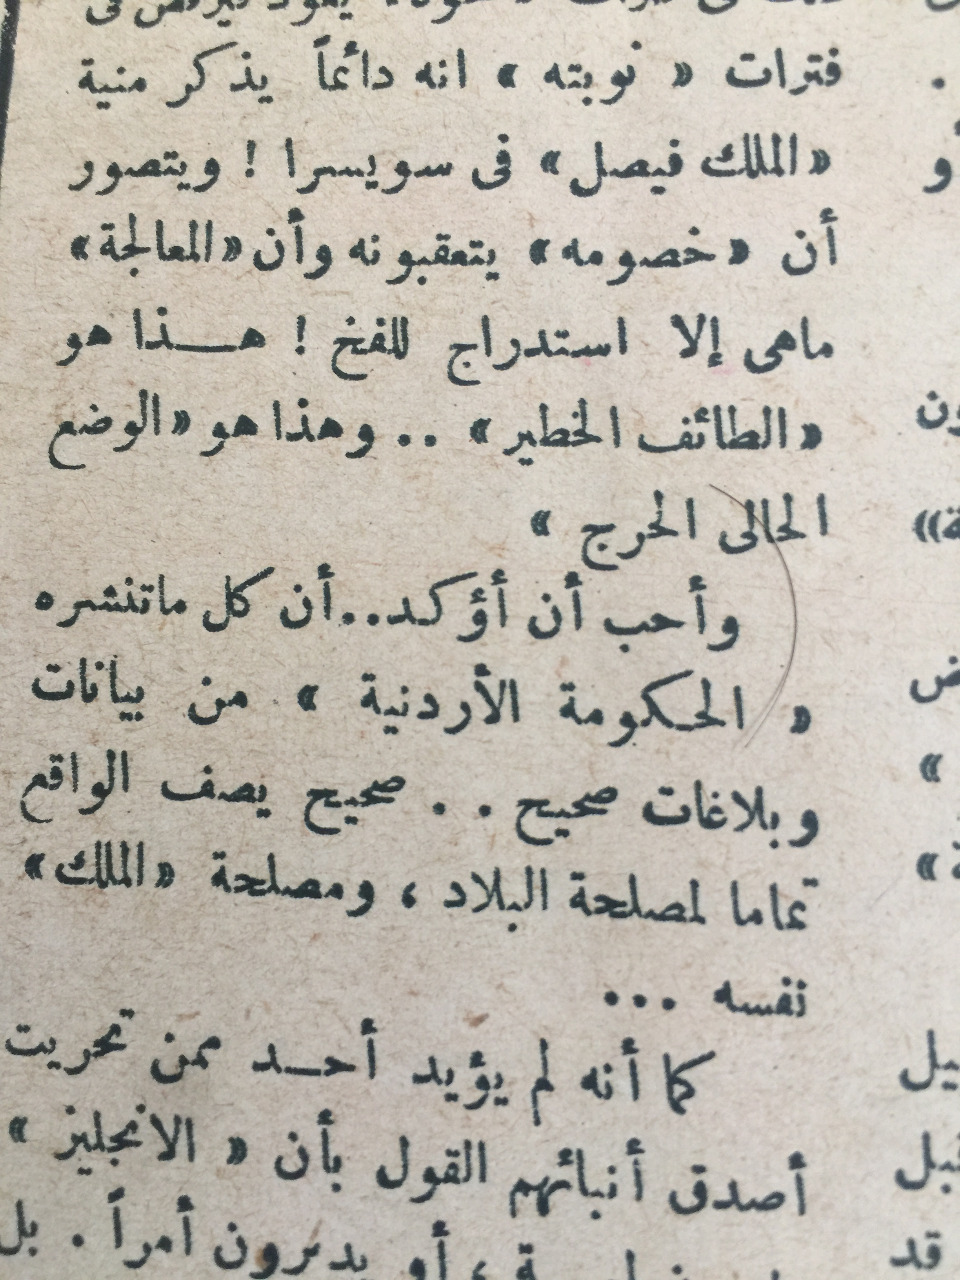 فترات « نوبته » انه دائماً يذكر منية
«الملك فيصل» فى سويسرا ! ويتصور
أن «خصومه» يتعقبونه وأن «المعالجة»
ماهى إلا استدراج للفخ ! هـذا هو
«الطائف الخطير» .. وهذا هو «الوضع
الحالى الحرج »
وأحب أن أؤكد..أن كل ماتنشره
« الحكومة الأردنية » من بيانات
وبلاغات صحيح . . صحيح يصف الواقع
تماما لمصلحة البلاد ، ومصلحة «الملك»
نفسه ...
كما أنه لم يؤيد أحـد ممن تحريت
أصدق أنبائهم القول بأن « الانجليز »
أو يدبرون أمراً . بل